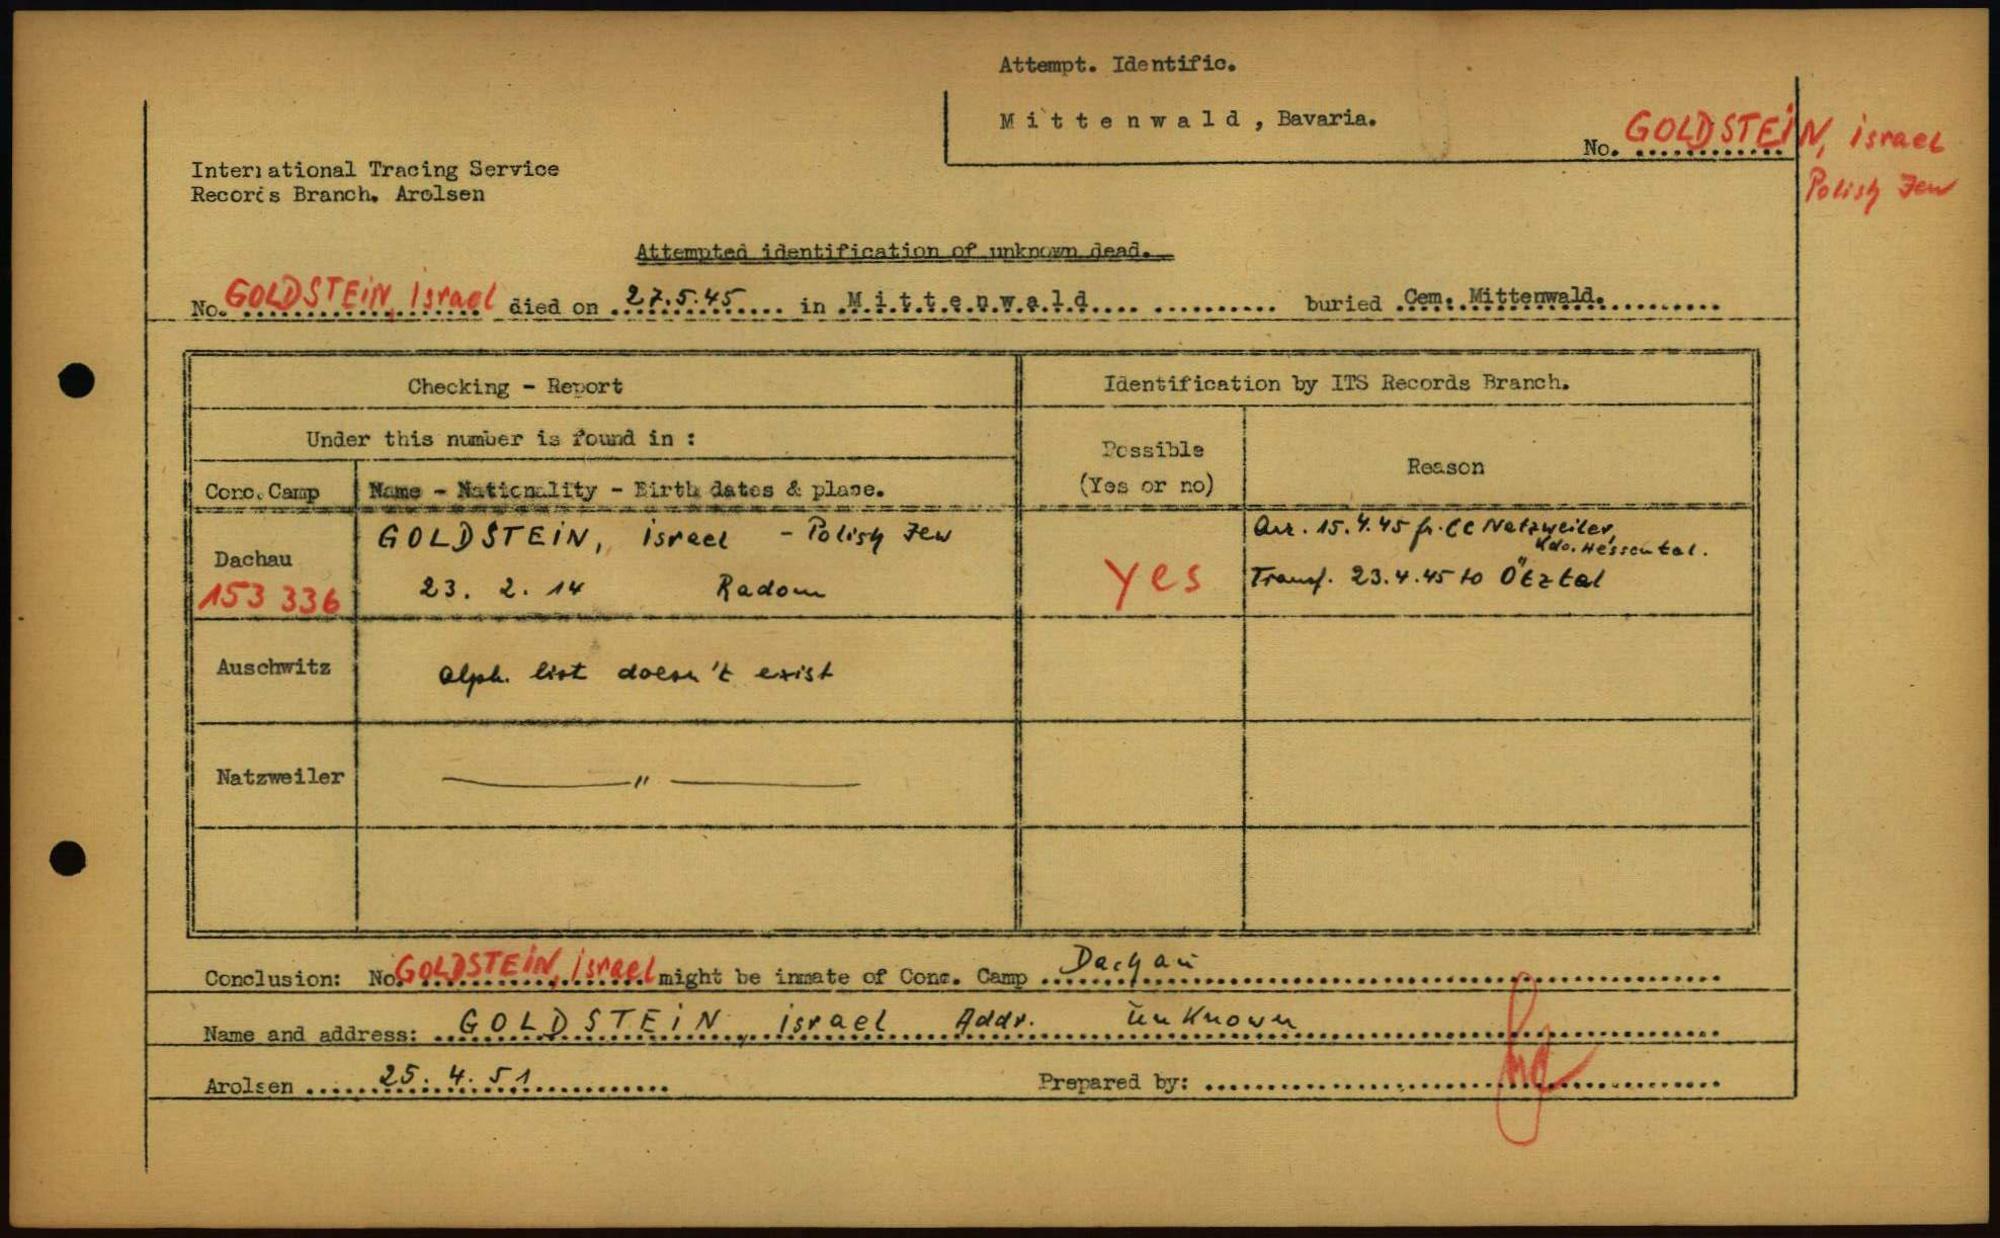 Attempt. Identific.
Mittenwald, Bavaria.
No. GOLDSTEIN, israel
Polish Jew
International Tracing Service
Records Branch. Arolsen
Attempted identification of unknown dead.
No. GOLDSTEIN, israel died on 27.5.45 in Mittenwald buried Cem. Mittenwald.
Checking - Report
Identification by ITS Records Branch.
Under this number is found in :
Possible
(Yes or no)
Reason
Conc. Camp
Name - Nationality - Birth dates & place.
Dachau
153 336
GOLDSTEIN, israel - Polish Jew
23. 2. 14 Radom
yes
Arr. 15.4.45 fr. CC Natzweiler,
Kdo. Hessental.
Transf. 23.4.45 to Ötztal
Auschwitz
alph. list doesn't exist
Natzweiler
— " —
Conclusion: No. GOLDSTEIN, israel might be inmate of Conc. Camp Dachau
Name and address: GOLDSTEIN, israel Addr. unknown
Arolsen 25. 4. 51
Prepared by: